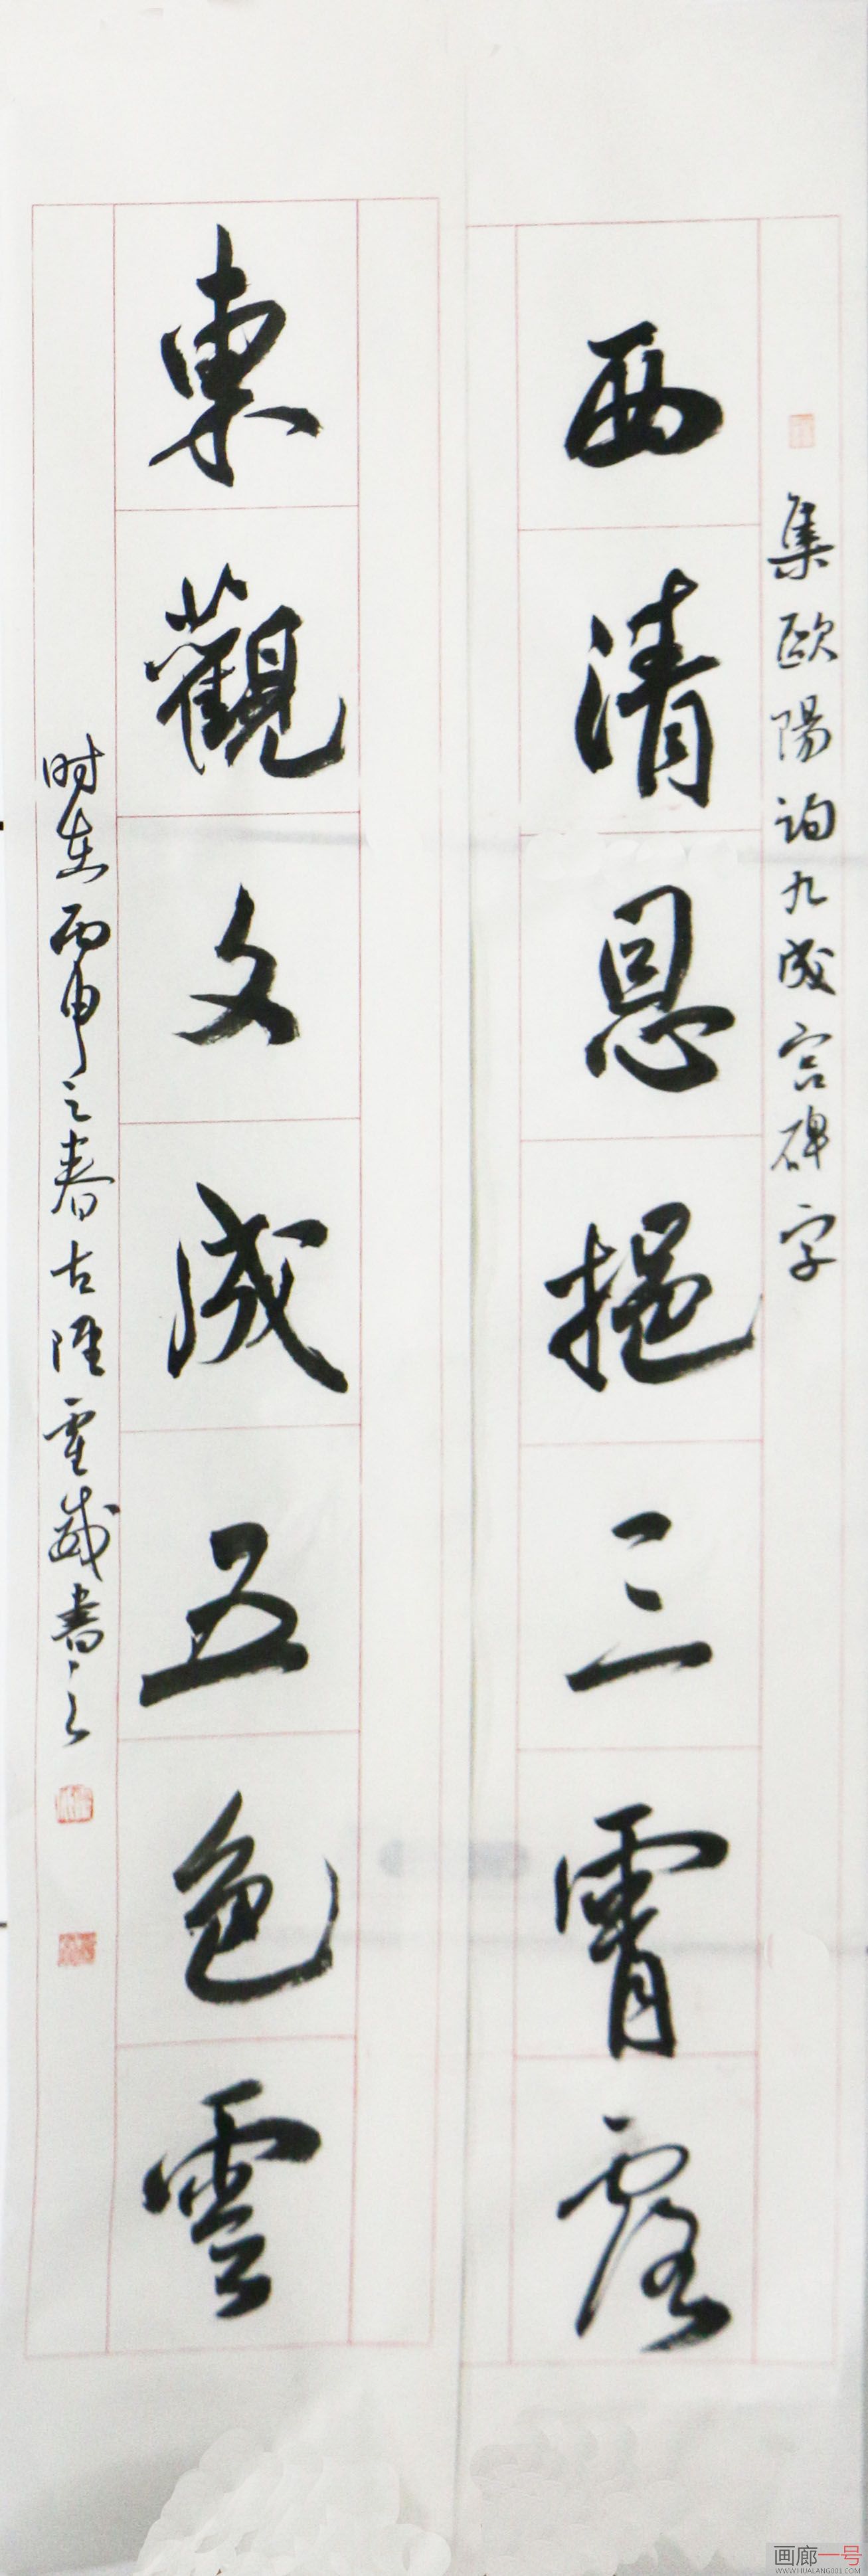 集歐陽詢九成宮碑字
西清恩挹三霄露
東觀文成五色雲
时在丙申之春古陘霍威書之
画廊一号
WWW.HUALANG001.COM